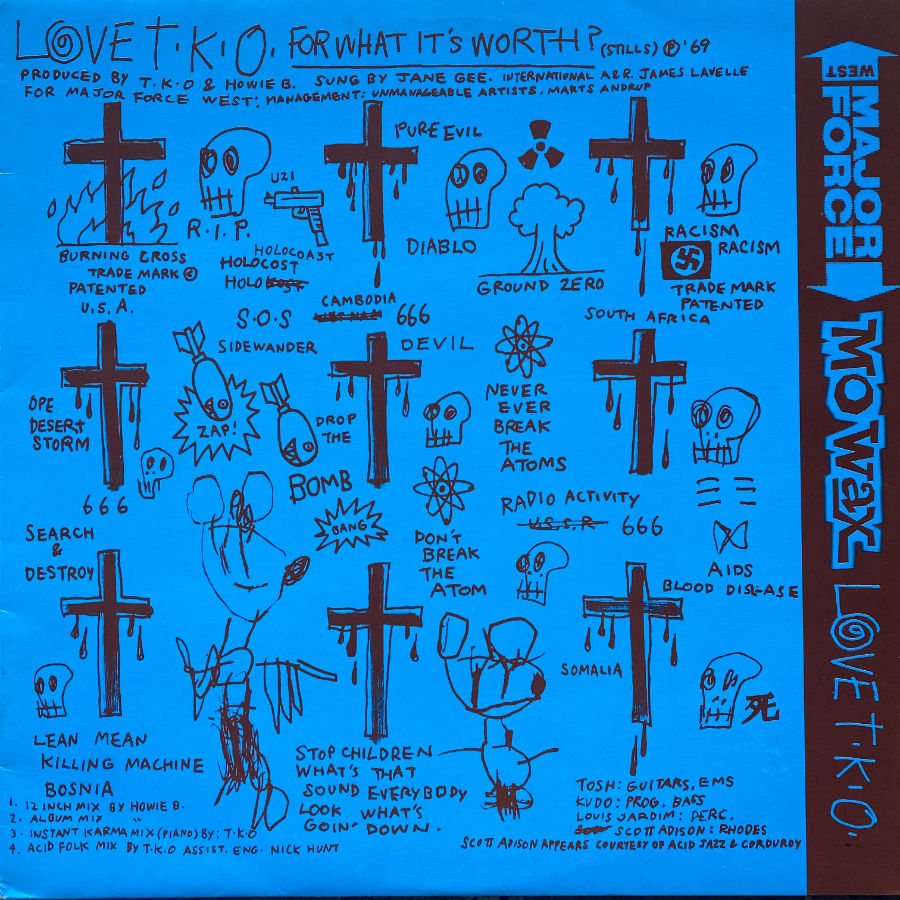 LOVE T.K.O. FOR WHAT IT'S WORTH? (STILLS) ℗ '69
PRODUCED BY T.K.O & HOWIE B. SUNG BY JANE GEE. INTERNATIONAL A&R. JAMES LAVELLE
FOR MAJOR FORCE WEST. MANAGEMENT: UNMANAGEABLE ARTISTS. MARTS ANDRUP
PURE EVIL
UZI
R.I.P.
DIABLO
RACISM
RACISM
BURNING CROSS
TRADE MARK ©
PATENTED
U.S.A.
HOLOCOAST
HOLOCOST
HOLOCOST
GROUND ZERO
TRADE MARK
PATENTED
SOUTH AFRICA
S.O.S
CAMBODIA
666
SIDEWANDER
DEVIL
OPE
DESERT
STORM
ZAP!
DROP
THE
BOMB
BANG
NEVER
EVER
BREAK
THE
ATOMS
666
SEARCH
&
DESTROY
RADIO ACTIVITY
U.S.S.R 666
DON'T
BREAK
THE
ATOM
AIDS
BLOOD DISEASE
SOMALIA
死
LEAN MEAN
KILLING MACHINE
BOSNIA
1. 12 INCH MIX BY HOWIE B.
2. ALBUM MIX "
3. INSTANT KARMA MIX (PIANO) BY: T.K.O
4. ACID FOLK MIX BY T.K.O ASSIST. ENG. NICK HUNT
STOP CHILDREN
WHAT'S THAT
SOUND EVERYBODY
LOOK WHAT'S
GOIN' DOWN.
TOSH: GUITARS, EMS
KUDO: PROG, BASS
LOUIS JARDIM: PERC.
SCOTT ADISON: RHODES
SCOTT ADISON APPEARS COURTESY OF ACID JAZZ & CORDUROY
MAJOR
FORCE
WEST
MO WAX
LOVE T.K.O.